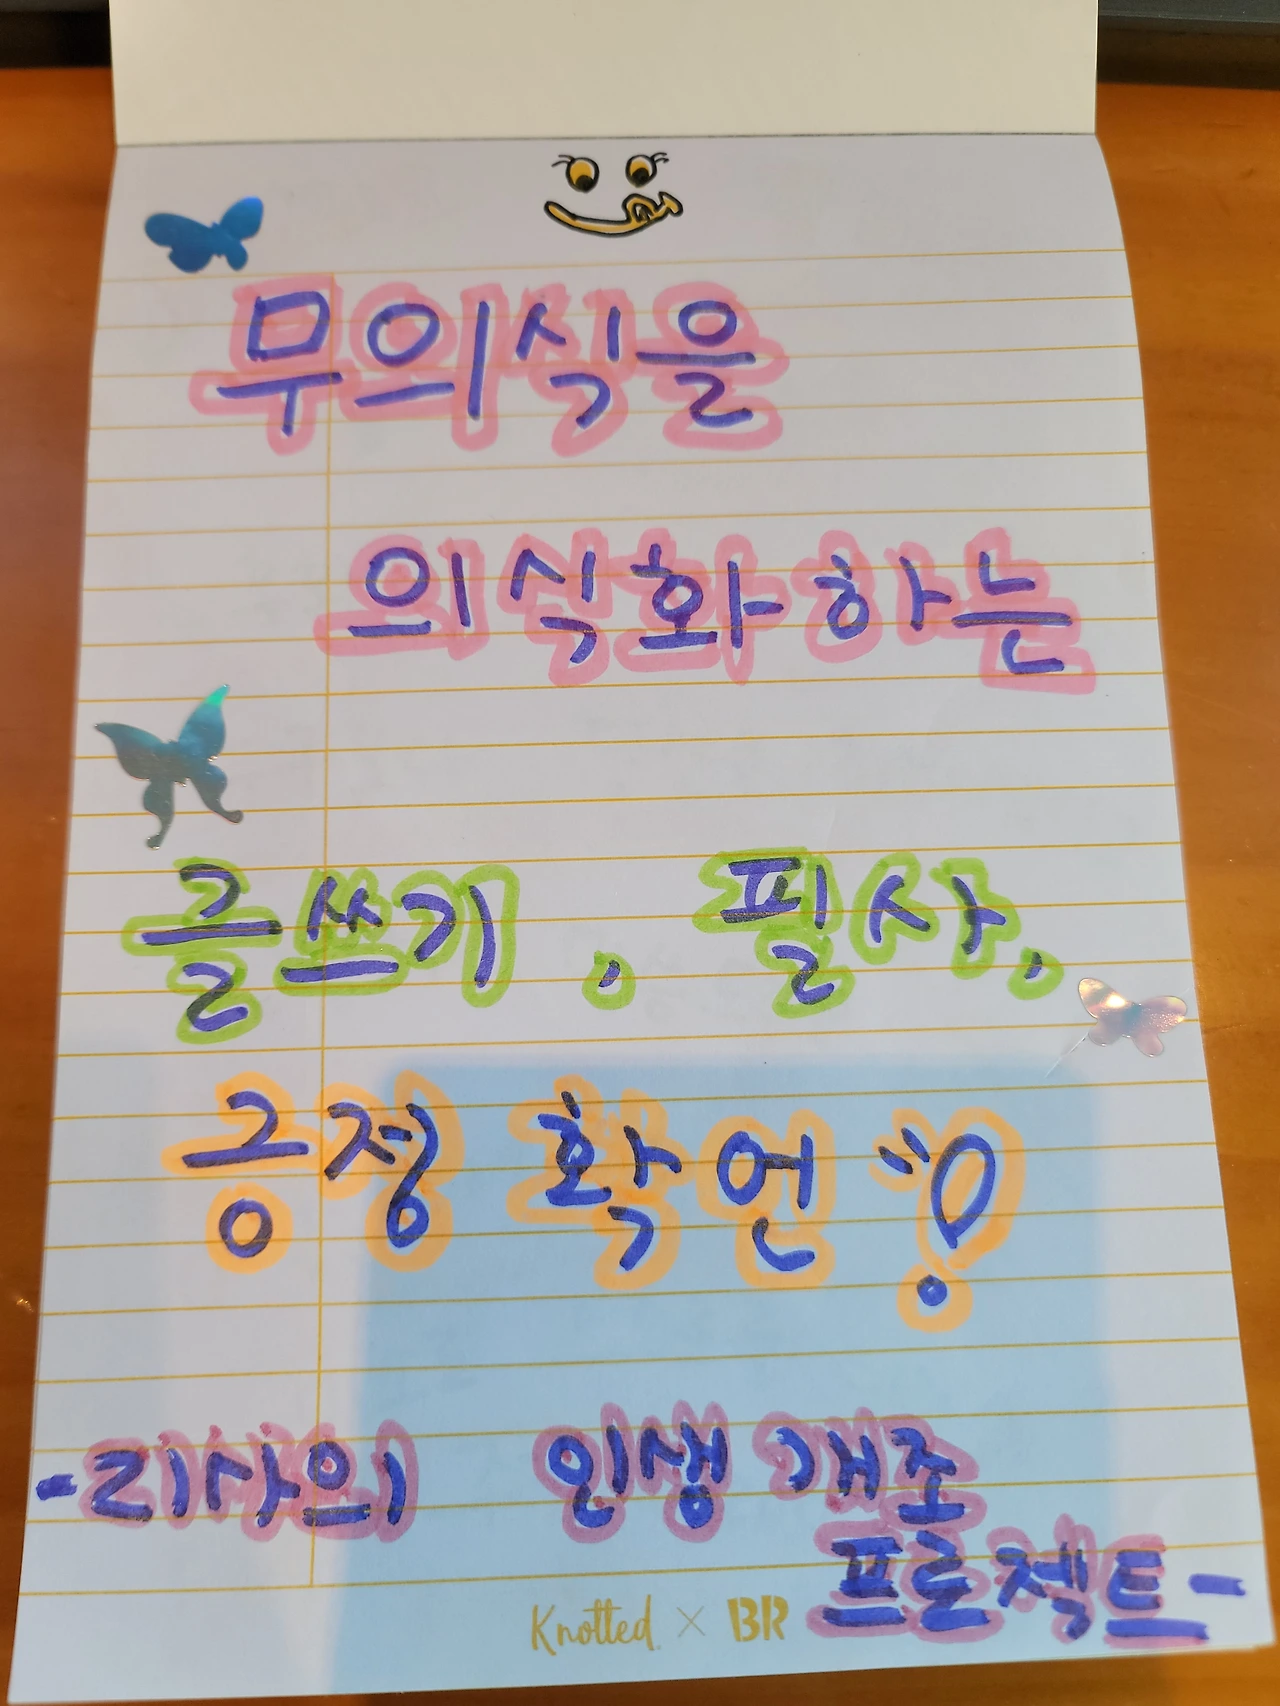 무의식을
의식화하는
글쓰기, 필사,
긍정 확언 !
-리사의 인생 개조
프로젝트-
Knotted × BR